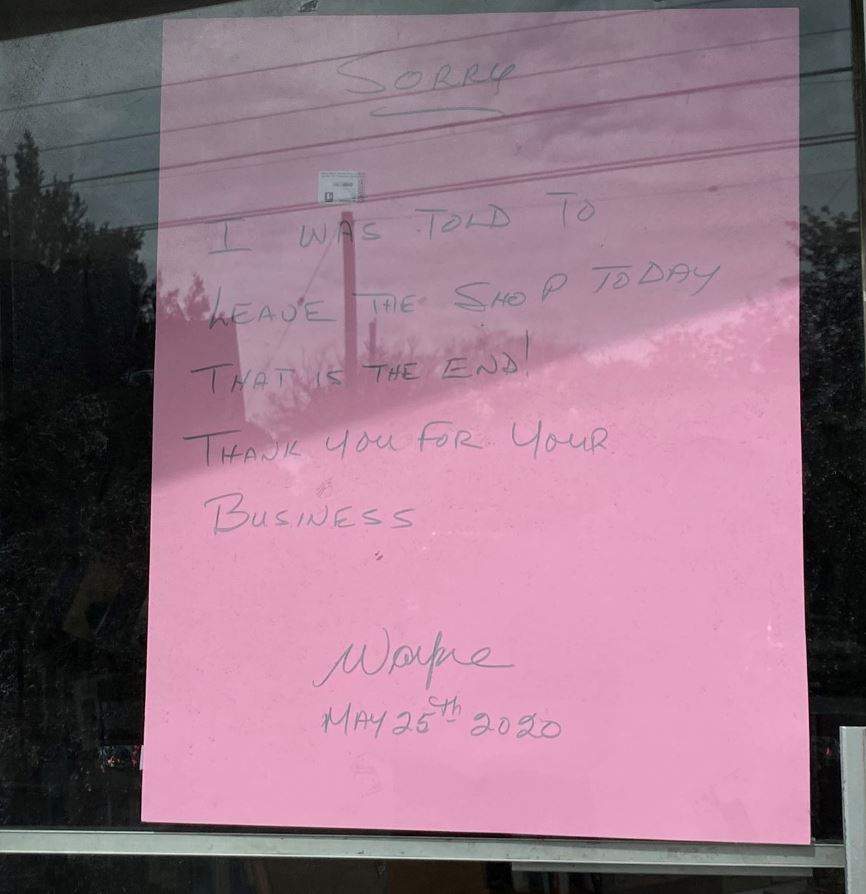 SORRY
I WAS TOLD TO
LEAVE THE SHOP TODAY
THAT IS THE END!
THANK YOU FOR YOUR
BUSINESS
Wayne
MAY 25th 2020